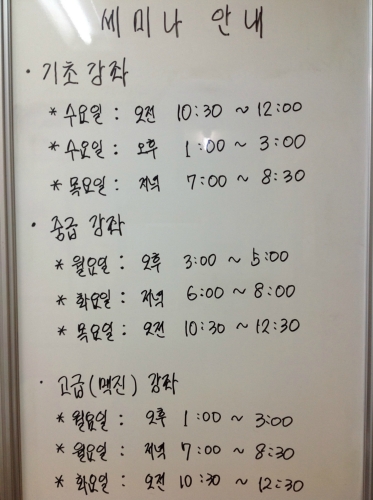 세미나 안내
· 기초강좌
* 수요일 : 오전 10:30 ~ 12:00
* 수요일 : 오후 1:00 ~ 3:00
* 목요일 : 저녁 7:00 ~ 8:30
· 중급 강좌
* 월요일 : 오후 3:00 ~ 5:00
* 화요일 : 저녁 6:00 ~ 8:00
* 목요일 : 오전 10:30 ~ 12:30
· 고급(맥진) 강좌
* 월요일 : 오후 1:00 ~ 3:00
* 월요일 : 저녁 7:00 ~ 8:30
* 화요일 : 오전 10:30 ~ 12:30